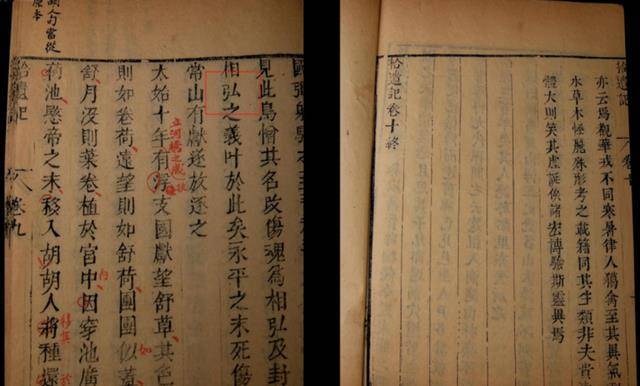 當從
見此鳥憎其名改傷魂為相弘及封
相弘之義叶於此矣永平之末死傷
常山有獻遂放逐之
太始十年有浮支國獻望舒草其色
則如卷荷遠望則如舒荷團團似蓋
舒月沒則葉卷植於宮中因穿池廣
荷池愍帝之末移入胡胡人將種還
拾遺記 卷九
拾遺記 卷十
亦云為觀華戎不同寒暑律人獦禽至其異氣
水草木怪麗殊形考之載籍同其生類非夫貴
體大則笑其虛誕俟諸宏博驗斯靈異焉
拾遺記卷十終